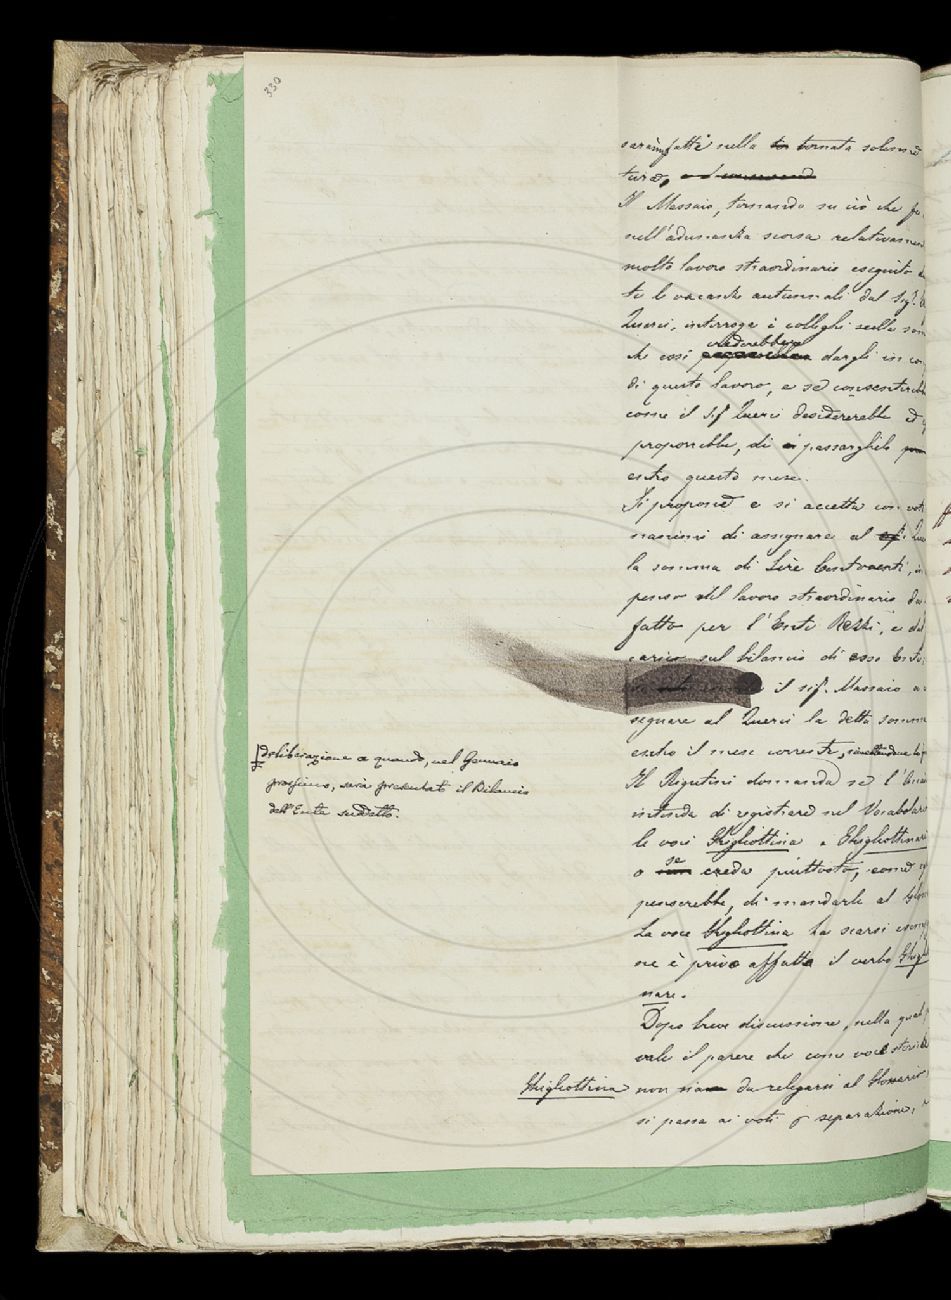 330
sarà infatti nella to tornata solenne
ture,
Il Massaio, tornando su ciò che fu
nell'adunanza scorsa relativamen
molto lavoro straordinario eseguito
te le vacanze autunnali dal Sigr.
Querci, interroga i colleghi sulla som
che così crederebbero dargli in com
di questo lavoro, e se consentirebb
come il Sigr Querci desidererebbe ed
proporrebbe, di passarglielo
entro questo mese.
Si propone e si accetta con voti
nanimi di assegnare al Sigr. Que
la somma di Lire Centoventi, in
penso del lavoro straordinario da
fatto per l'Ente Rezzi, e del
carico sul bilancio di esso Ente.
il sigr. Massaio a
segnare al Querci la detta somma
entro il mese corrente, rimettendone la p
deliberazione a quando, nel Gennaio
prossimo, sarà presentato il Bilancio
dell'Ente suddetto.
Il Rigutini domanda se l'Acca
intenda di registrare nel Vocabolar
le voci Ghigliottina e Ghigliottinar
o se creda piuttosto, come
penserebbe, di mandarle al Glos
La voce Ghigliottina ha scarsi esem
ne è privo affatto il verbo Ghigliot
nare.
Dopo breve discussione, nella qual p
vale il parere che come voce storica
Ghigliottina non sia da relegarsi al Glossario,
si passa ai voti p separazione,